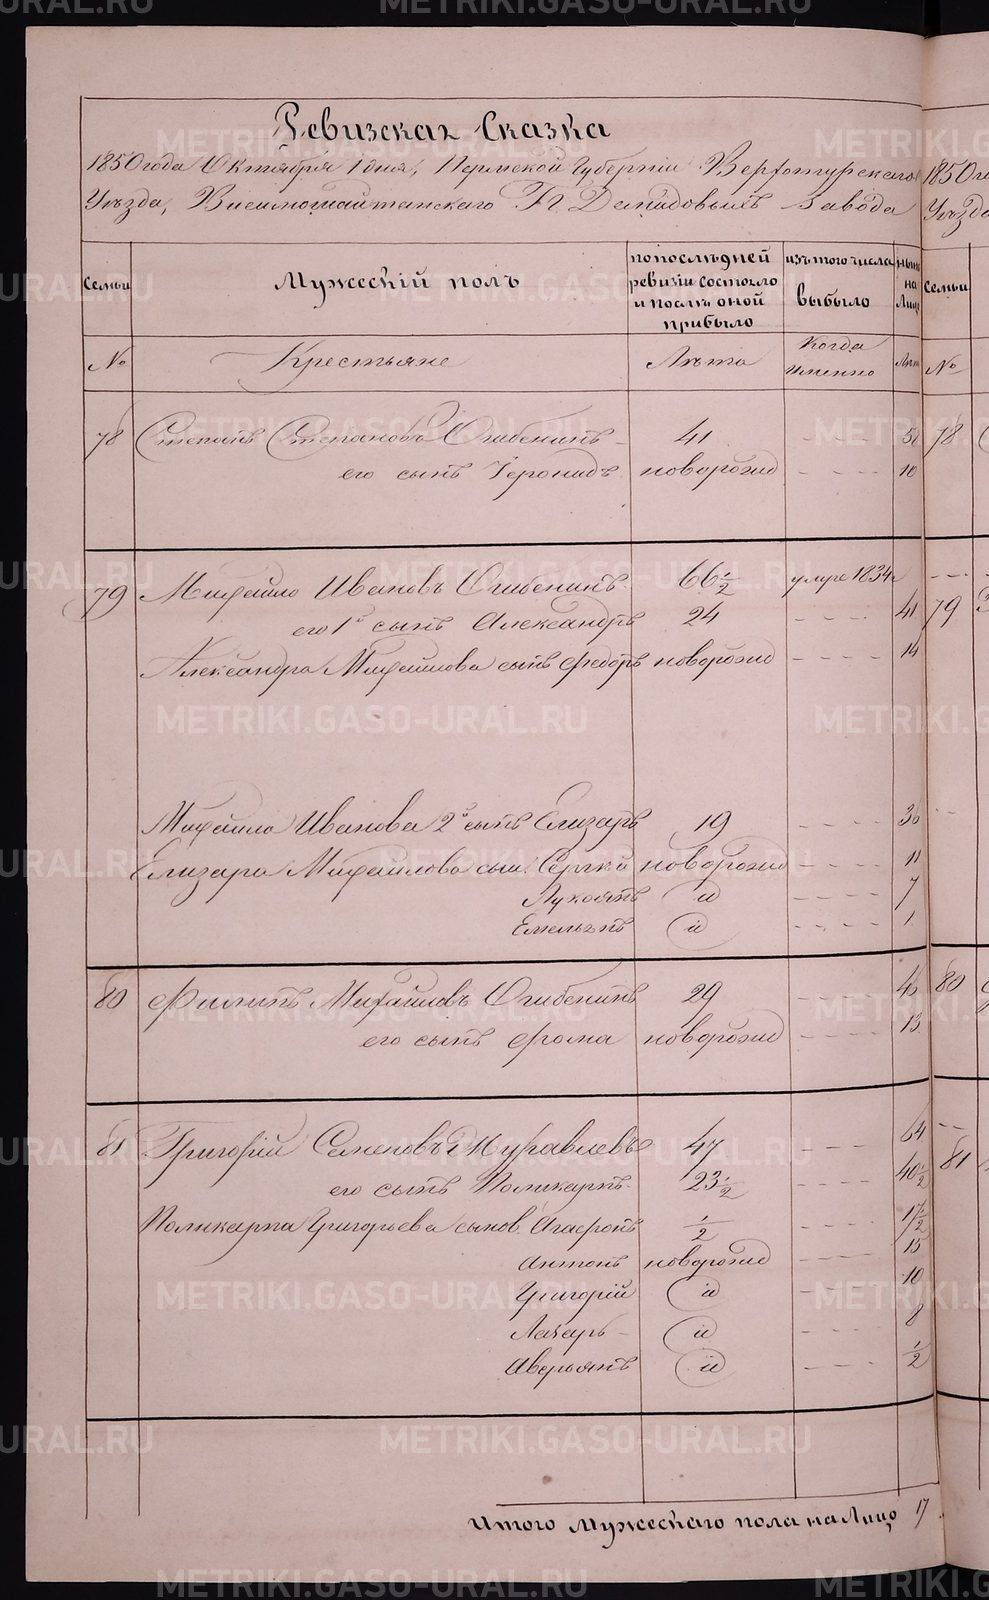 Ревизская Сказка
1850 года Октября 1 дня, Пермской Губернiи Верхотурскаго
Уѣзда, Висимошайтанскаго Гг. Демидовыхъ завода
Семьи
Мужескiй полъ
по послѣдней ревизiи состояло и послѣ оной прибыло
изъ того числа выбыло
ныне на Лицо
№
Крестьяне
Лѣта
Когда именно
Лѣта
78 Степанъ Степановъ Огибенинъ 41 - - - - 51
его сынъ Iеронидъ новорожд - - - - 10
79 Михайло Ивановъ Огибенинъ 66 1/2 умре 1834 г
его 1й сынъ Александръ 24 - - - - 41
Александра Михайлова сынъ Федоръ новорожд - - - - 14
Михайла Иванова 2й сынъ Елизаръ 19 - - - - 36
Елизара Михайлова сын. Сергѣй новорожд - - - - 11
Лукоянъ и - - - - 7
Емельянъ и - - - - 1
80 Филипъ Михайловъ Огибенинъ 29 - - - - 45
его сынъ Фома новорожд - - - - 13
81 Григорiй Семеновъ Муравлевъ 47 - - - 64
его сынъ Поликарпъ 23 1/2 - - - - 40 1/2
Поликарпа Григорьева сынов. Агафонъ 1/2 - - - - 17 1/2
Антонъ новорожд - - - - 15
Григорiй и - - - - 10
Лазарь и - - - - 8
Аверьянъ и - - - - 1/2
Итого Мужескаго пола на Лицо 17
1850 го
Уѣзда
Семьи
№
78
79
80
81
METRIKI.GASO-URAL.RU